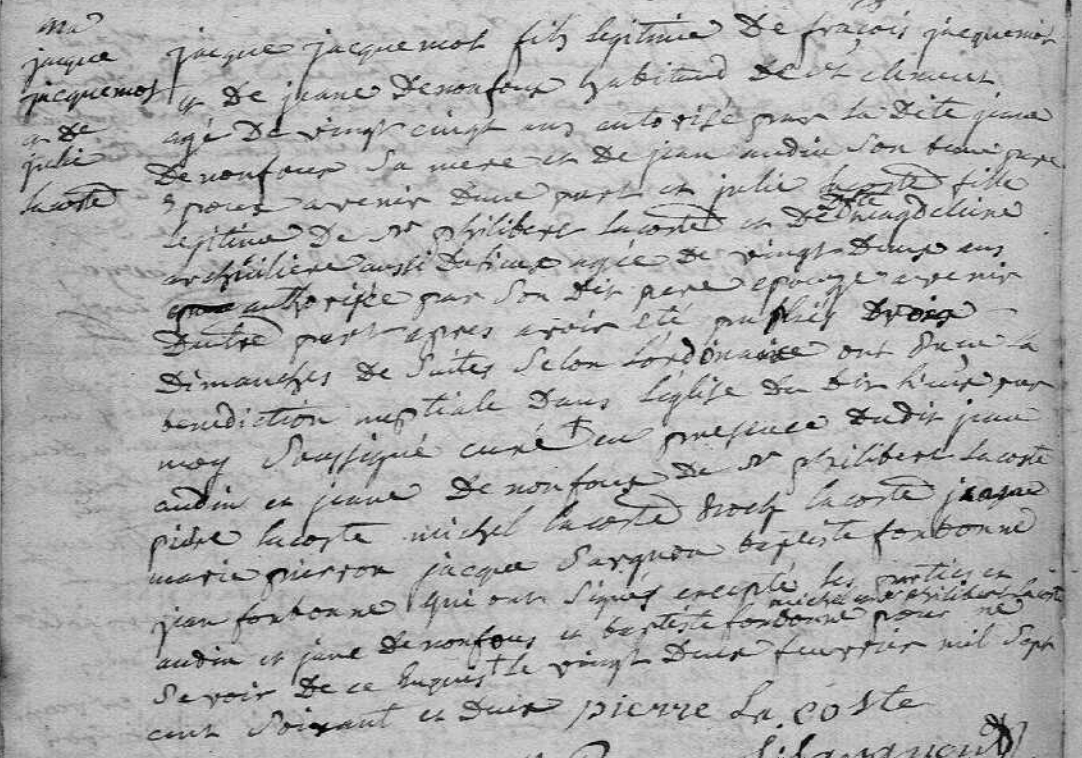 ma
jacque
jacquemot
et de
julie
lacoste
jacque jacquemot fils legitime De fraçois jacquemot
et De jeane Denonfoux habitand De st clement
agé De vingt cinqt ans autorisé par la Dite jeane
Denonfoux Sa mere et De jean audin Son beau pere
Epoux avenir Dune part et julie lacoste fille
legitime De Sr philibert lacoste et De Dlle magdeleine
aussi Dud lieux agée De vingt Deux ans
authorisée par Son Dit pere epouze avenir
Dautre part apres avoir été publiés trois
Dimanches De Suites Selon Lordinaire ont Reçu la
benediction nuptiale Dans Léglise du Dit lieux par
moy Soussigné curé en presence dudit jean
audin et jeane Denonfoux De Sr philibert Lacoste
piere lacoste michel lacoste Roch lacoste
marie pierron jacque Sarguon baptiste fonbonne
jean fonbonne qui ont Signés excepté les parties et
michel et philibert lacoste
audin et jane denonfous et baptiste fonbonne pour ne
Savoir De ce Enquis le vingt Deux feuvrier mil Sept
cent Soixant et Deux pierre La coste